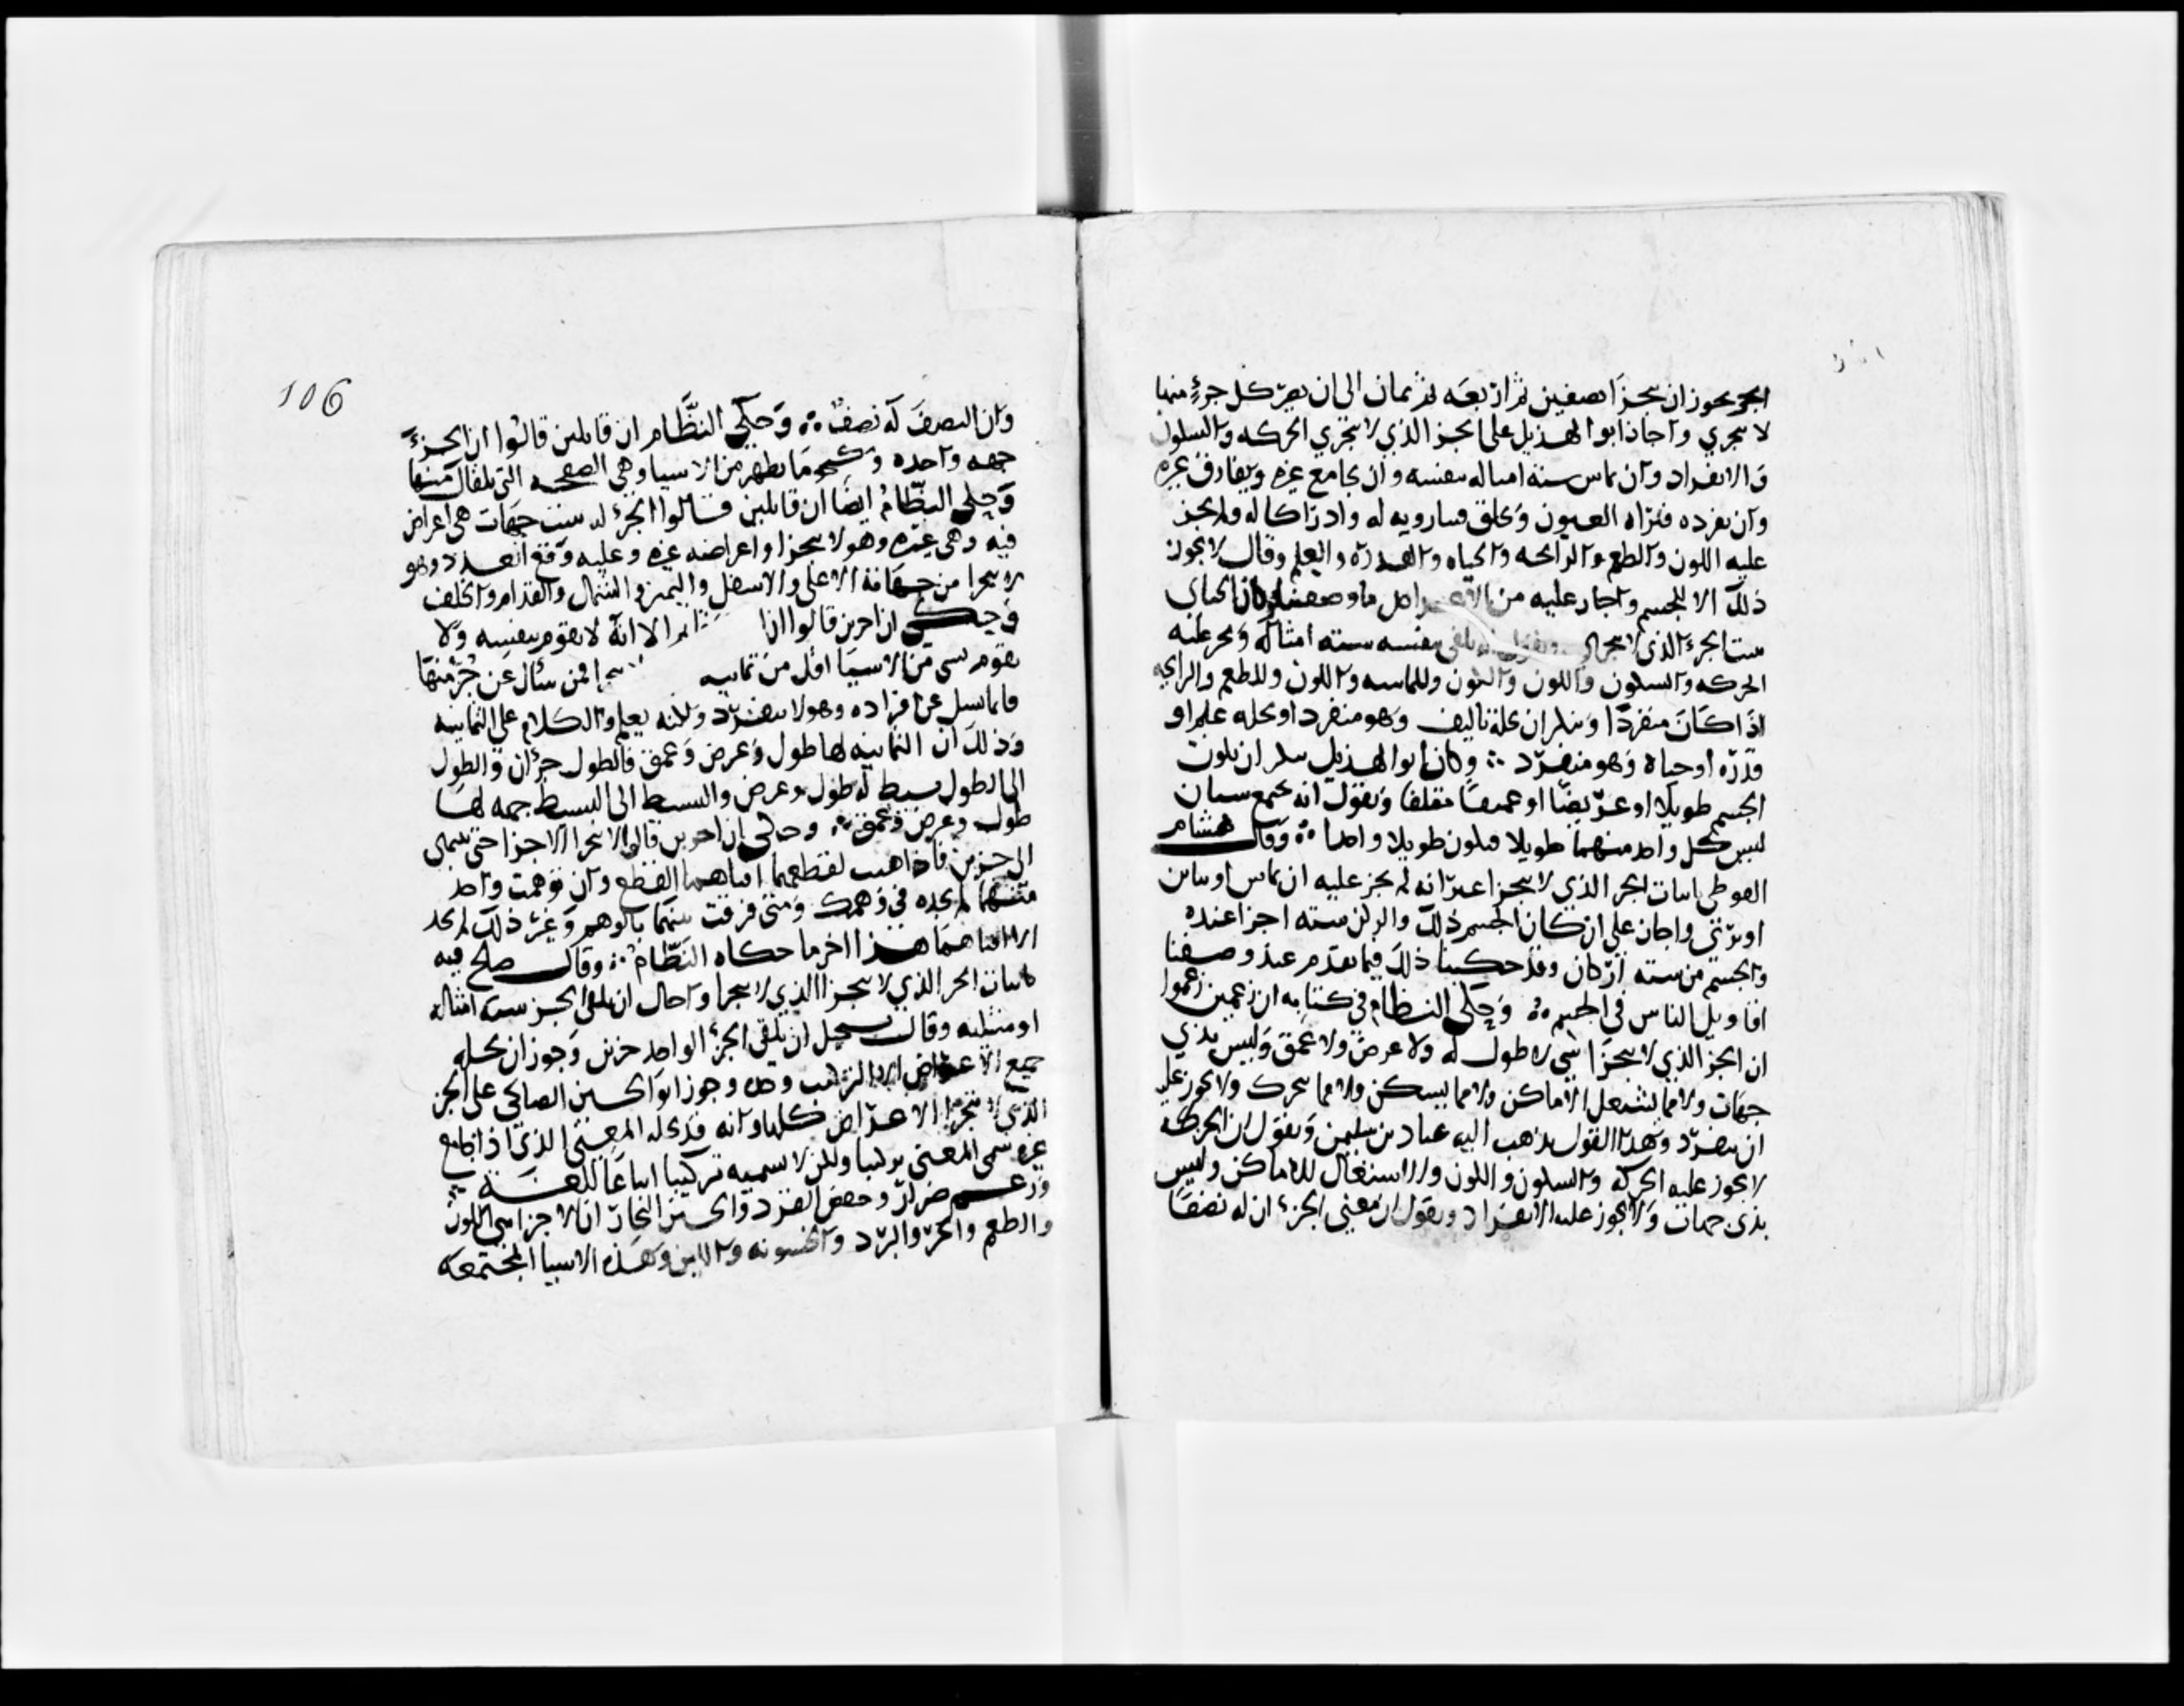 الجز يجوز ان يتجزا نصفين ثم اربعه ثم ثمان الى ان يصير كل جزء منها
لا يتجزي واجاز ابو الهذيل على الجز الذي لا يتجزي الحركه والسكون
والانفراد وان يماس سته امثاله بنفسه وان يجامع غيره ويفارق غيره
وان يفرده فتراه العيون ويخلق فينا رويه له وادراكا له ولم يجز
عليه اللون والطعم والرائحه والحياه والقدره والعلم وقال لا يجوز
ذلك الا للجسم واجاز عليه من الاعراض ما وصفنا وكان الجباي
يثبت الجزء الذي لا يتجزا ويقول انه يلقى بنفسه سته امثاله ويجيز عليه
الحركه والسكون واللون والكون والمماسه واللون والطعم والرايحه
اذا كان منفردا وينكر ان يحله تاليف وهو منفرد او يحله علم او
قدره او حياة وهو منفرد ∴ وكان ابو الهذيل ينكر ان يكون
الجسم طويلا او عريضا او عميقا مؤلفا ويقول انه يجتمع شيان
ليس كل واحد منهما طويلا فيكون طويلا واحدا ∴ وقال هشام
الفوطي باثبات الجز الذي لا يتجزا غير انه لم يجز عليه ان يماس او يباين
او يرى واجاز على اركان الجسم ذلك والركن سته اجزا عنده
والجسم من سته اركان وقد حكينا ذلك فيما تقدم عند وصفنا
اقاويل الناس في الجسم ∴ وحكى النظام في كتابه ان زاعمين زعموا
ان الجز الذي لا يتجزا شي لا طول له ولا عرض ولا عمق وليس بذي
جهات ولا مما يشغل الاماكن ولا مما يسكن ولا مما يتحرك ولا يجوز عليه
ان ينفرد وهذا القول يذهب اليه عباد بن سليمن ويقول ان الجز
لا يجوز عليه الحركه والسكون واللون ولا اشتغال للاماكن وليس
بذي جهات ولا يجوز عليه الانفراد ويقول ان معنى الجزء ان له نصفا
106
وان النصف له نصف ∴ وحكى النظام ان قايلين قالوا ان الجزء
جهه واحده وكنحو ما يظهر من الاشيا وهي الصفحه التي تلقاك منها
وحكى النظام ايضا ان قايلين قالوا الجزء له ست جهات هي اعراض
فيه وهي غيره وهو لا يتجزا واعراضه غيره وعليه وقع العدد وهو
لا يتجزا من جهاته الاعلى والاسفل واليمين والشمال والقدام والخلف
وحكى ان اخرين قالوا ان الا انه لا يقوم بنفسه ولا
يقوم شي من الاشيا اقل من ثمانيه فمن سال عن جز منها
فانما يسل عن افراده وهو لا ينفرد ولكنه يعلم والكلام على الثمانيه
وذلك ان الثمانيه لها طول وعرض وعمق فالطول جزان والطول
الى الطول بسيط له طول وعرض والبسيط الى البسيط جثه لها
طول وعرض وعمق ∴ وحكى ان اخرين قالوا الا تتجزا الاجزا حتى تنتهي
الى جزين فاذا هبت لقطعهما افناهما القطع وان توهمت واحد
منهما لم تجده في وهمك ومتى فرقت بينهما بالوهم وغير ذلك لم تجد
الا فناهما هذا اخر ما حكاه النظام ∴ وقال صلح قبه
باثبات الجز الذي لا يتجزا واحال ان يلقى الجز سته امثاله
او مثليه وقال يستحيل ان يلقى الجزء الواحد جزين وجوز ان يحله
جميع الاعراض الا التركيب وحده وجوز ابو الحسين الصالحي على الجز
الذي لا يتجزا الاعراض كلها وانه قد يحله المعنى الذي اذا جامع
غيره سمي المعنى تركيبا ولكن لا نسميه تركيبا اتباعا للغه ∴
وزعم ضرار وحفص الفرد والحسين النجار ان الاجزا هي اللون
والطعم والحر والبرد والخشونه واللين وهذه الاشيا المجتمعه